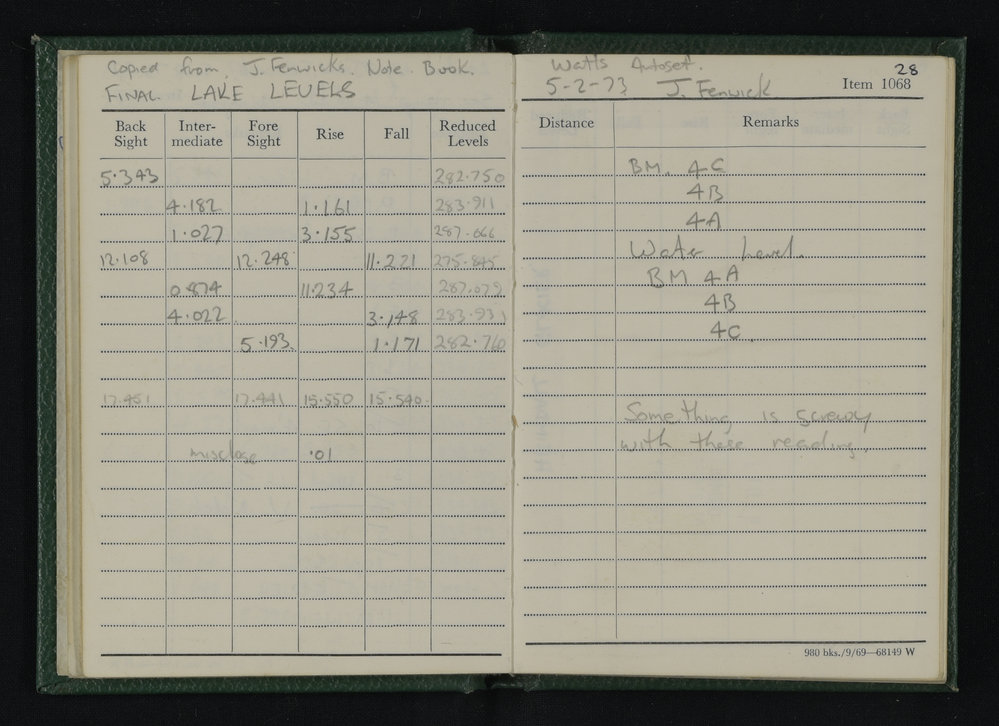 Copied from J. Fenwicks Note Book.
FINAL LAKE LEVELS
Back Sight Inter-mediate Fore Sight Rise Fall Reduced Levels
5.343 282.750
4.182 1.161 283.911
1.027 3.155 287.066
12.108 12.248 11.221 275.845
0.874 11.234 287.079
4.022 3.148 283.931
5.193 1.171 282.760
17.451 17.441 15.550 15.540
misclose .01
Watts Autoset.
28
5-2-73 J. Fenwick Item 1068
Distance Remarks
BM. 4C
4B
4A
Water Level.
BM 4A
4B
4C.
Something is screwy
with these reading.
980 bks./9/69—68149 W